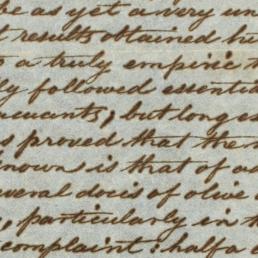 be as yet a very un
t results obtained
a truly empiric
ly followed essenti
, but long es
s proved that the
nown is that of a
everal docis of olive
, particularly in t
complaint: half a